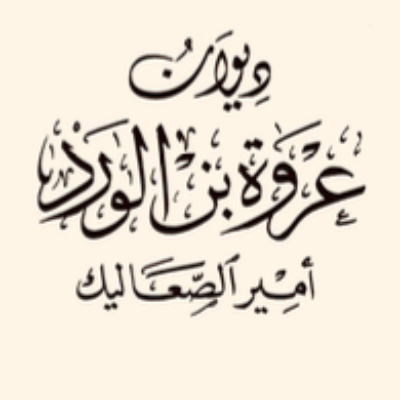 دِيوَانُ
عُرْوَة بْن الوَرَدْ
أَمِيْر ٱلصِّعَاليك